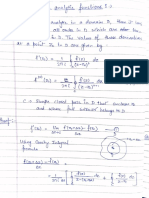 analytic functions :
analytic in a domain D, then it has
of all orders in D which are also
in D. The values of these derivatives
at a point Z₀ in D are given by
f'(z₀) = 1/2πi ∫ f(z)/(z-z₀)² dz
fⁿ(z₀) = n!/2πi ∫ f(z)/(z-z₀)ⁿ⁺¹ dz
C = Simple closed path in D that encloses z₀
and whose full interior belongs to D.
f'(z₀) = lim f(z₀+Δz) - f(z₀)
Using Cauchy Integral
formula
f(z₀+Δz) - f(z₀)
Δz
= 1/2πi [ ∫ f(z)/z-(z₀+Δz) dz - ∫ f(z)/z-z₀ dz ]